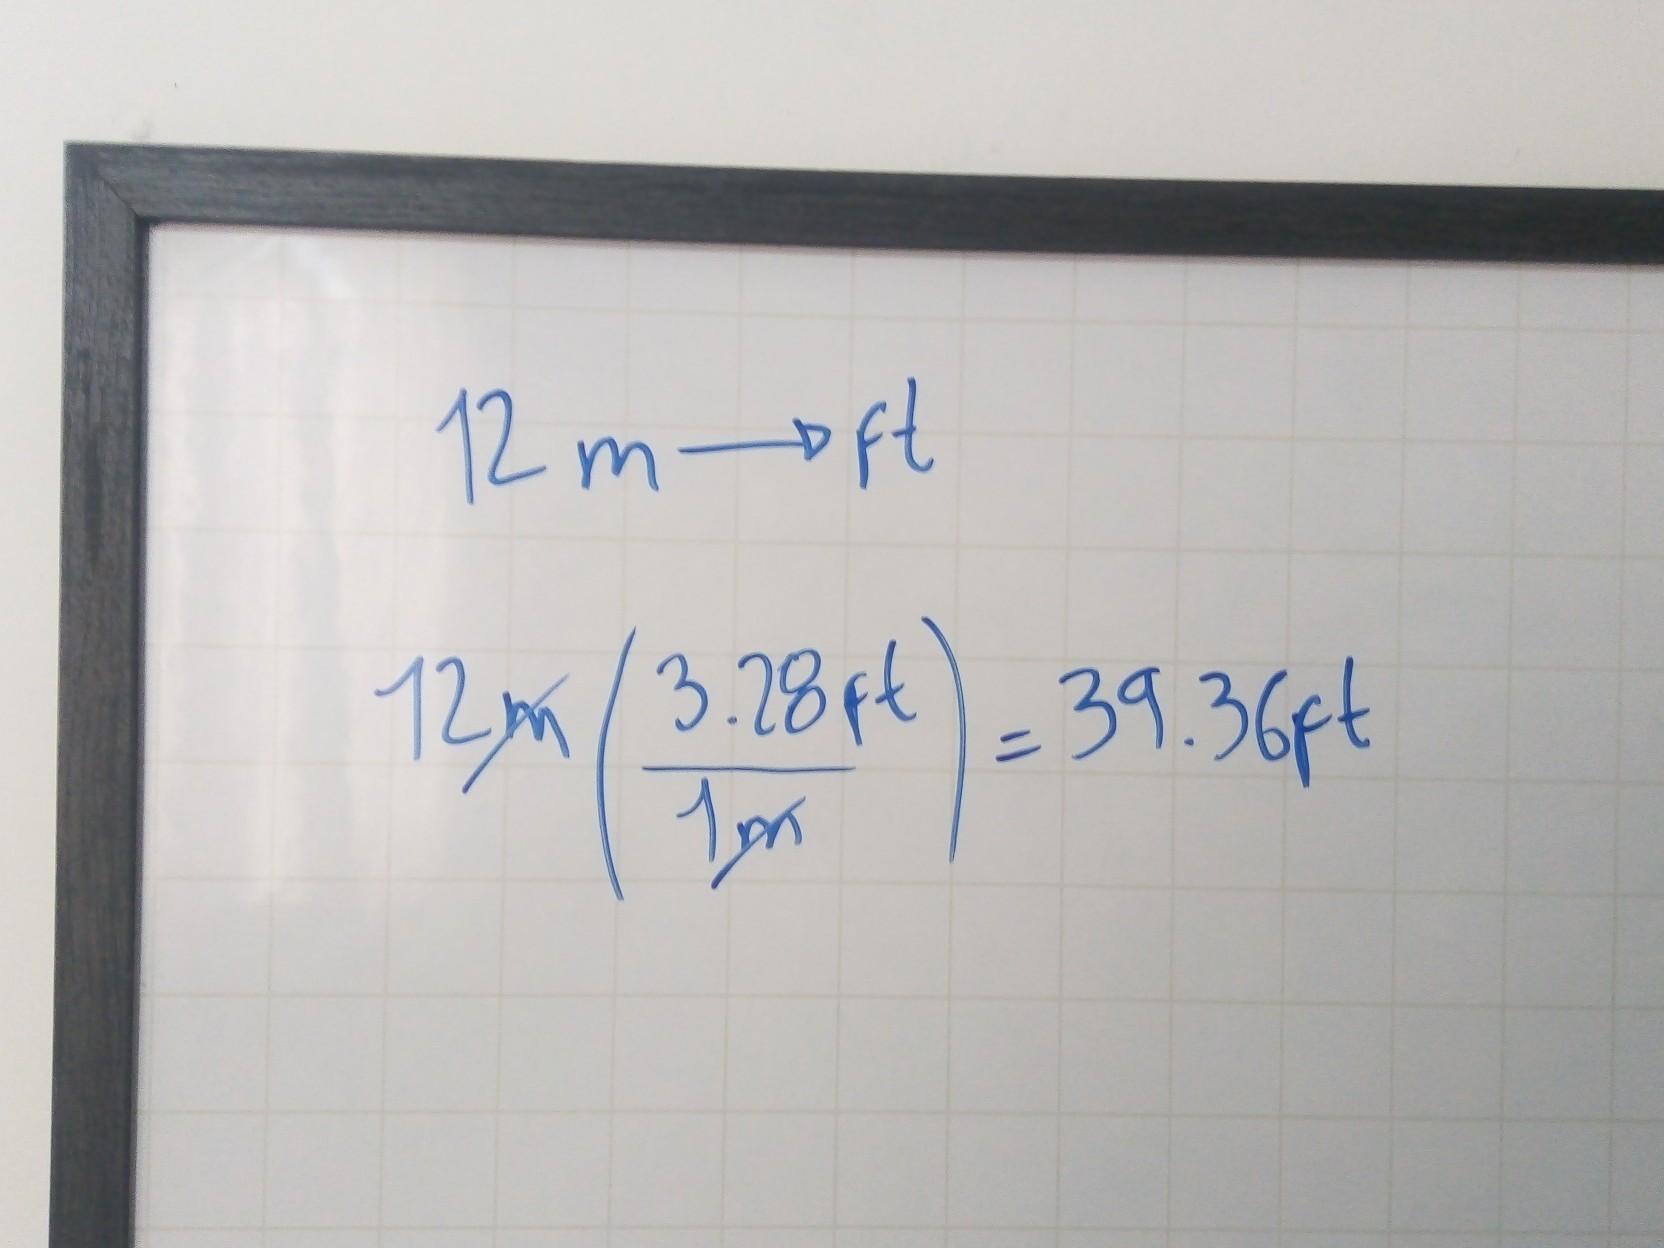 12 m → ft
12m (3.28ft / 1m) = 39.36ft